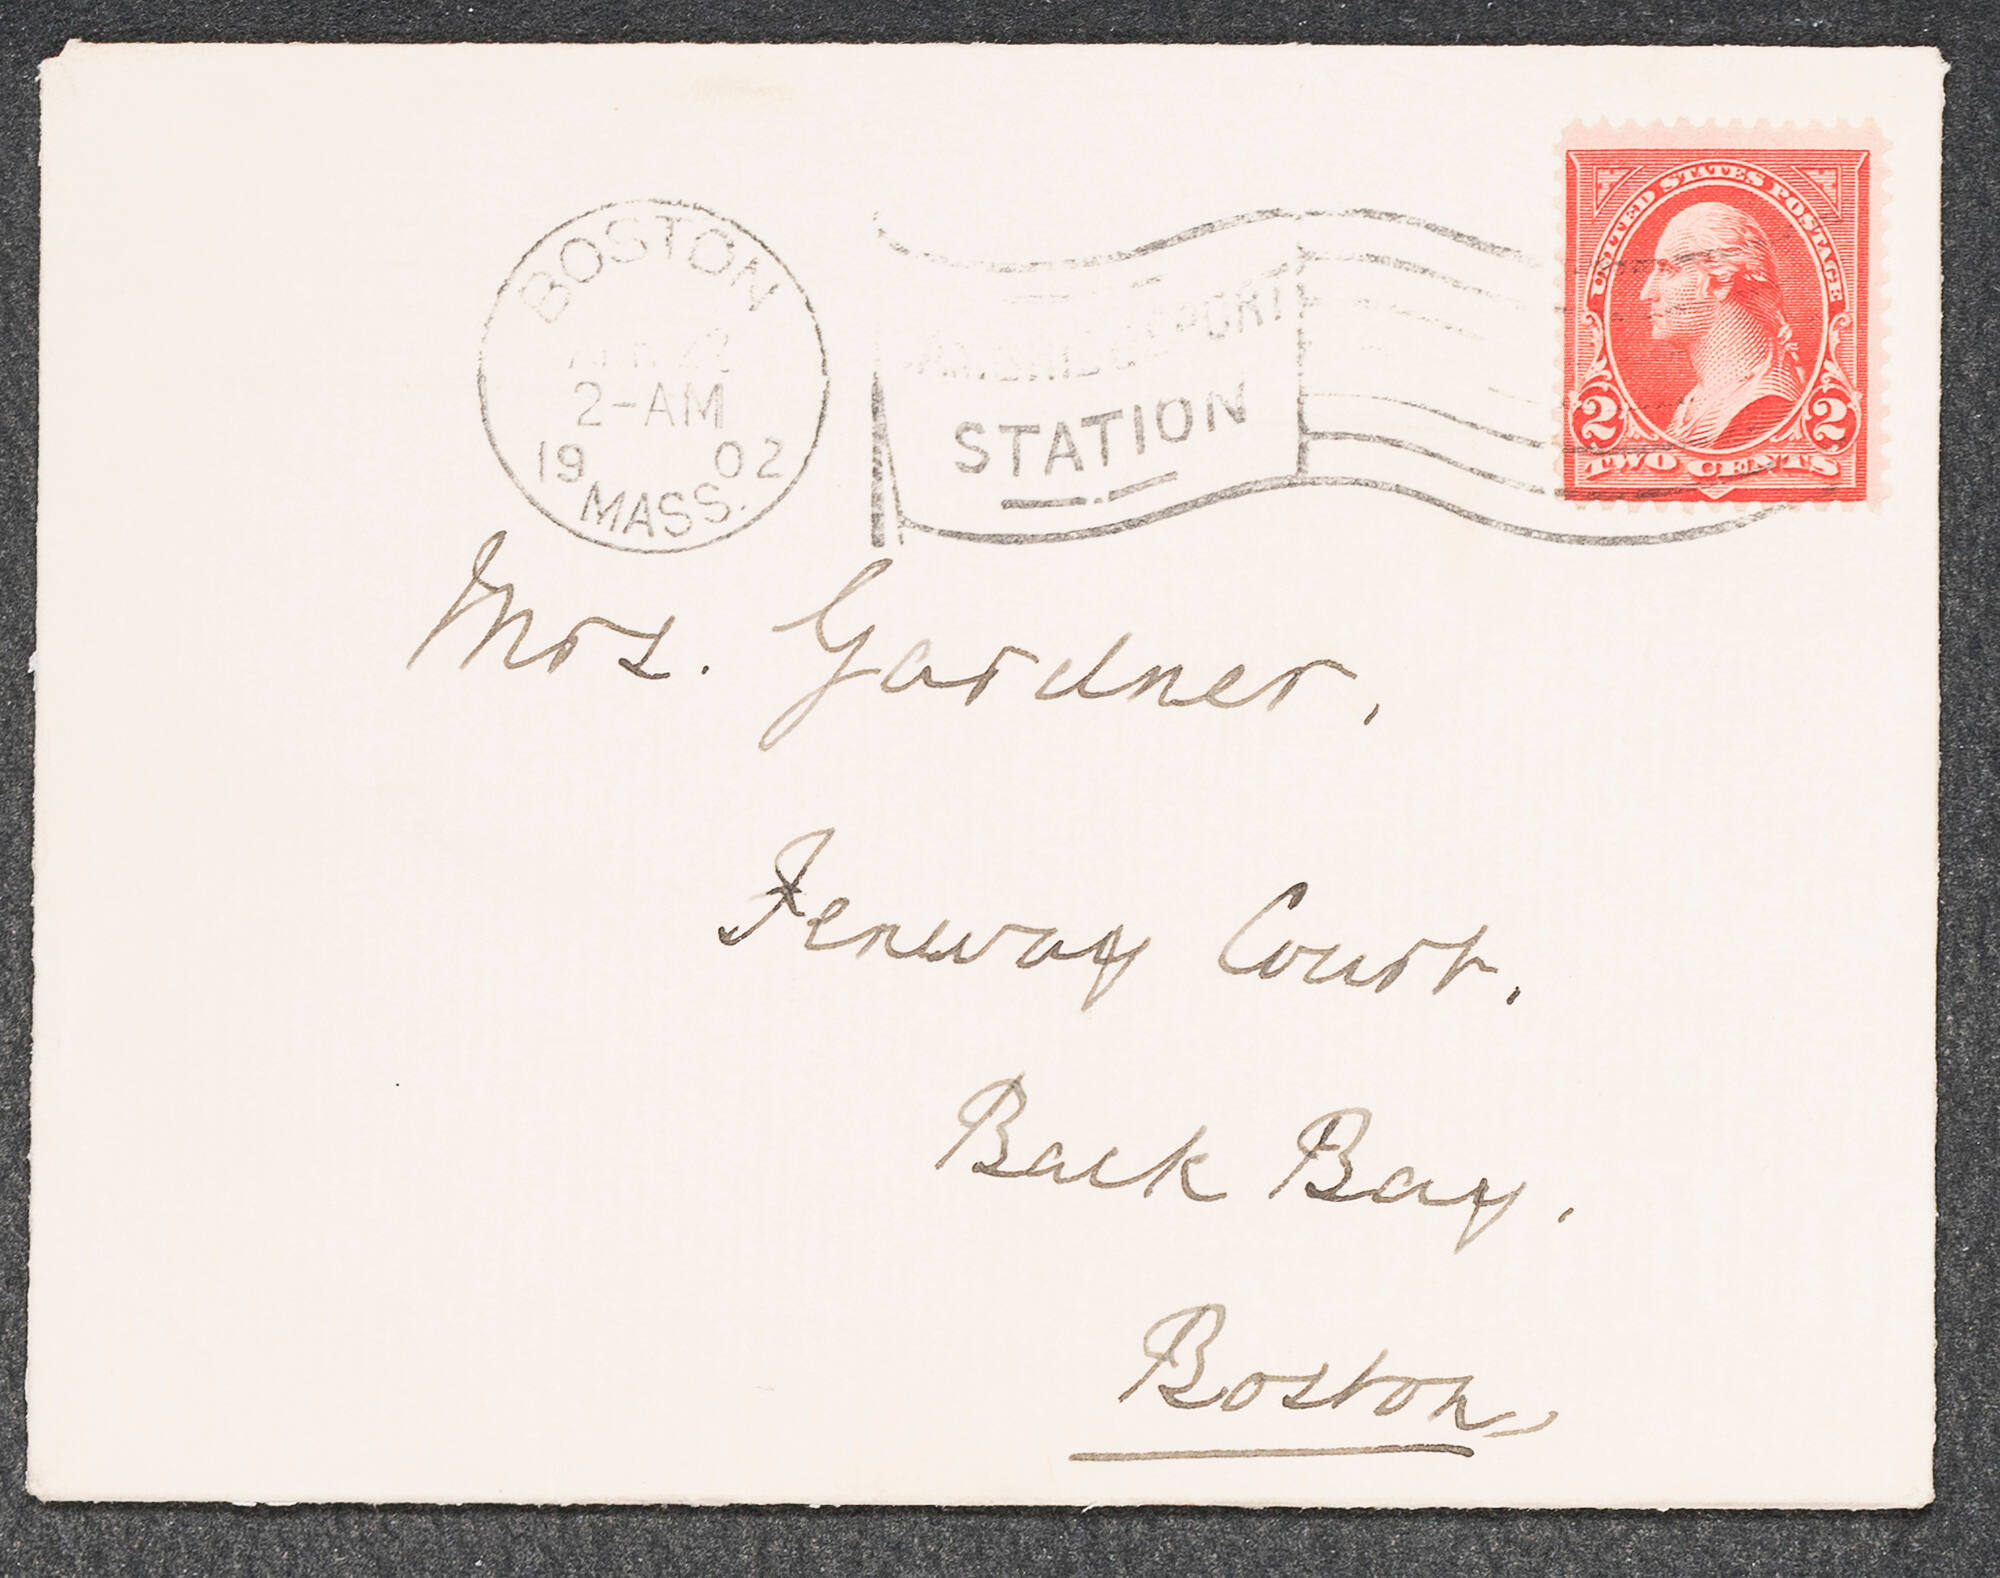 BOSTON
2-AM
19 02
MASS.
STATION
UNITED STATES POSTAGE
2 2
TWO CENTS
Mrs. Gardner,
Fenway Court.
Back Bay.
Boston,